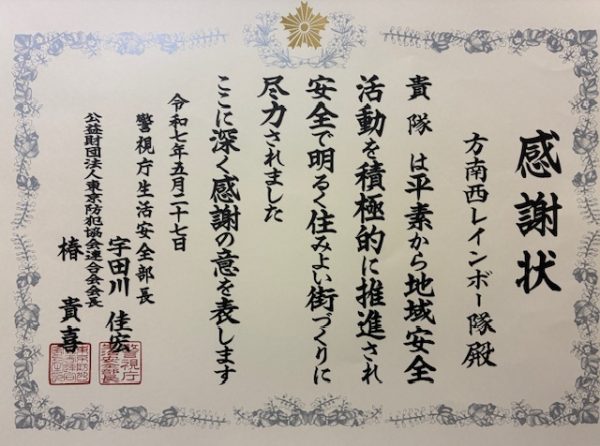 感謝状
方南西レインボー隊殿
貴隊は平素から地域安全
活動を積極的に推進され
安全で明るく住みよい街づくりに
尽力されました
ここに深く感謝の意を表します
令和七年五月二十七日
警視庁生活安全部長
宇田川佳宏
公益財団法人東京防犯協会連合会会長
椿貴喜
警視庁生活安全部長